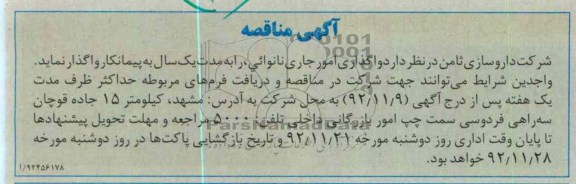 آگهی مناقصه
شرکت داروسازی ثامن در نظر دارد واگذاری امور جاری نانوائی، را به مدت یک سال به پیمانکار واگذار نماید.
واجدین شرایط می‌توانند جهت شرکت در مناقصه و دریافت فرم‌های مربوطه حداکثر ظرف مدت
یک هفته پس از درج آگهی (۹۲/۱۱/۹) به محل شرکت به آدرس: مشهد، کیلومتر ۱۵ جاده قوچان
سه‌راهی فردوسی سمت چپ امور بازرگانی داخلی تلفن: ۵۰۰۰ مراجعه و مهلت تحویل پیشنهادها
تا پایان وقت اداری روز دوشنبه مورخه ۹۲/۱۱/۲۱ و تاریخ بازگشایی پاکت‌ها در روز دوشنبه مورخه
۹۲/۱۱/۲۸ خواهد بود.
۱/۹۲۴۵۶۱۷۸
ParsNamadData